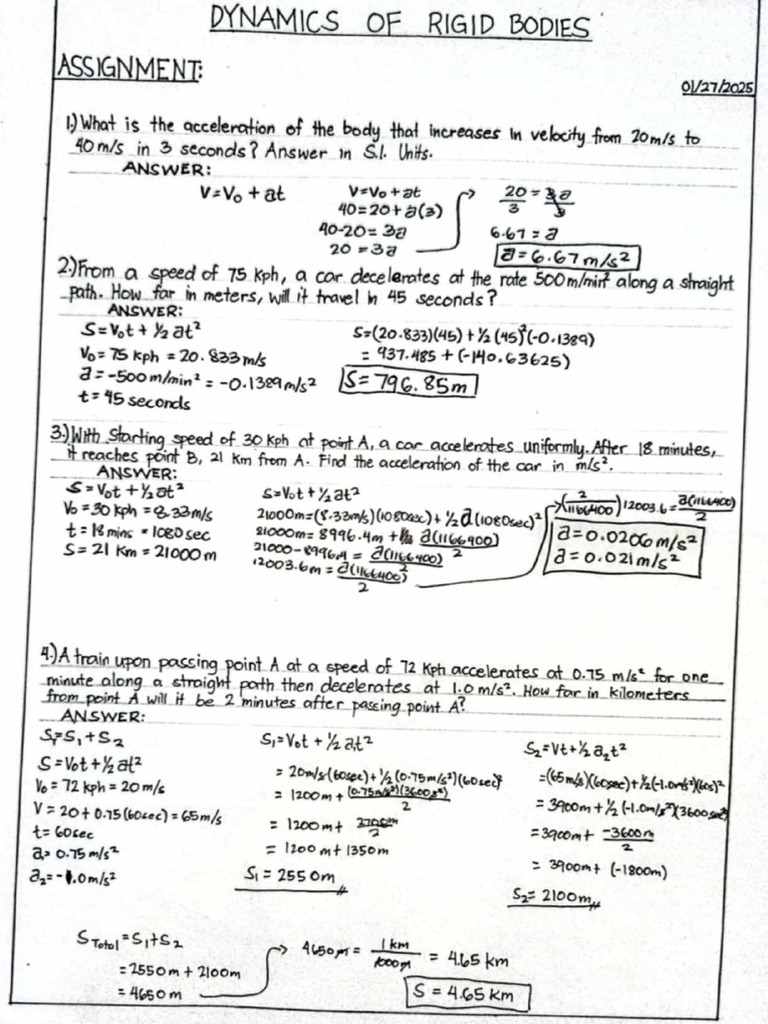 DYNAMICS OF RIGID BODIES
ASSIGNMENT:
01/27/2025
1.) What is the acceleration of the body that increases in velocity from 20m/s to
40 m/s in 3 seconds? Answer in S.I. Units.
ANSWER:
V=V₀ + at
V=V₀ + at
40=20+a(3)
40-20 = 3a
20 = 3a
20/3 = 3a/3
6.67 = a
a = 6.67 m/s²
2.) From a speed of 75 kph, a car decelerates at the rate 500 m/min² along a straight
path. How far in meters, will it travel in 45 seconds?
ANSWER:
S=V₀t + ½ at²
V₀ = 75 kph = 20.833 m/s
a = -500 m/min² = -0.1389 m/s²
t = 45 seconds
S=(20.833)(45) + ½ (45)²(-0.1389)
= 937.485 + (-140.63625)
S= 796.85m
3.) With Starting speed of 30 kph at point A, a car accelerates uniformly. After 18 minutes,
it reaches point B, 21 Km from A. Find the acceleration of the car in m/s².
ANSWER:
S = V₀t + ½ at²
V₀ = 30 kph = 8.33 m/s
t = 18 mins = 1080 sec
S = 21 Km = 21000 m
S=V₀t + ½ at²
21000m=(8.33m/s)(1080sec) + ½ a (1080sec)²
21000m= 8996.4m + a(1166400)/2
21000-8996.4 = a(1166400)/2
12003.6m = a(1166400)/2
(2/1166400) 12003.6 = a(1166400)/2
a=0.0206 m/s²
a= 0.021 m/s²
4.) A train upon passing point A at a speed of 72 Kph accelerates at 0.75 m/s² for one
minute along a straight path then decelerates at 1.0 m/s². How far in kilometers
from point A will it be 2 minutes after passing point A?
ANSWER:
S=S₁ + S₂
S = V₀t + ½ at²
V₀ = 72 kph = 20 m/s
V = 20 + 0.75(60sec) = 65 m/s
t = 60sec
a = 0.75 m/s²
a₂ = -1.0 m/s²
S₁ = V₀t + ½ at²
= 20m/s (60sec) + ½ (0.75m/s²)(60sec)²
= 1200m + (0.75m/s²)(3600s²)/2
= 1200m + 2700m/2
= 1200 m + 1350m
S₁ = 2550m
S₂ = Vt + ½ a₂t²
= (65m/s)(60sec) + ½(-1.0m/s²)(60s)²
= 3900m + ½ (-1.0m/s²)(3600sec²)
= 3900m + -3600m/2
= 3900m + (-1800m)
S₂ = 2100m
S Total = S₁+S₂
= 2550m + 2100m
= 4650 m
4650m = 1 km/1000m = 4.65 km
S = 4.65 km